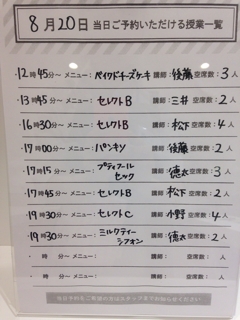 8月20日 当日ご予約いただける授業一覧
・12時45分～ メニュー：ベイクドチーズケーキ 講師：後藤 空席数：3人
・13時45分～ メニュー：セレクトB 講師：三井 空席数：2人
・16時30分～ メニュー：セレクトB 講師：松下 空席数：4人
・17時00分～ メニュー：パンシン 講師：後藤 空席数：2人
・17時15分～ メニュー：プティフールセック 講師：徳太 空席数：3人
・17時45分～ メニュー：セレクトB 講師：松下 空席数：2人
・19時30分～ メニュー：セレクトC 講師：小野 空席数：4人
・19時30分～ メニュー：ミルクティーシフォン 講師：徳太 空席数：2人
・ 時 分～ メニュー： 講師： 空席数： 人
・ 時 分～ メニュー： 講師： 空席数： 人
当日予約をご希望の方はスタッフまでお知らせください